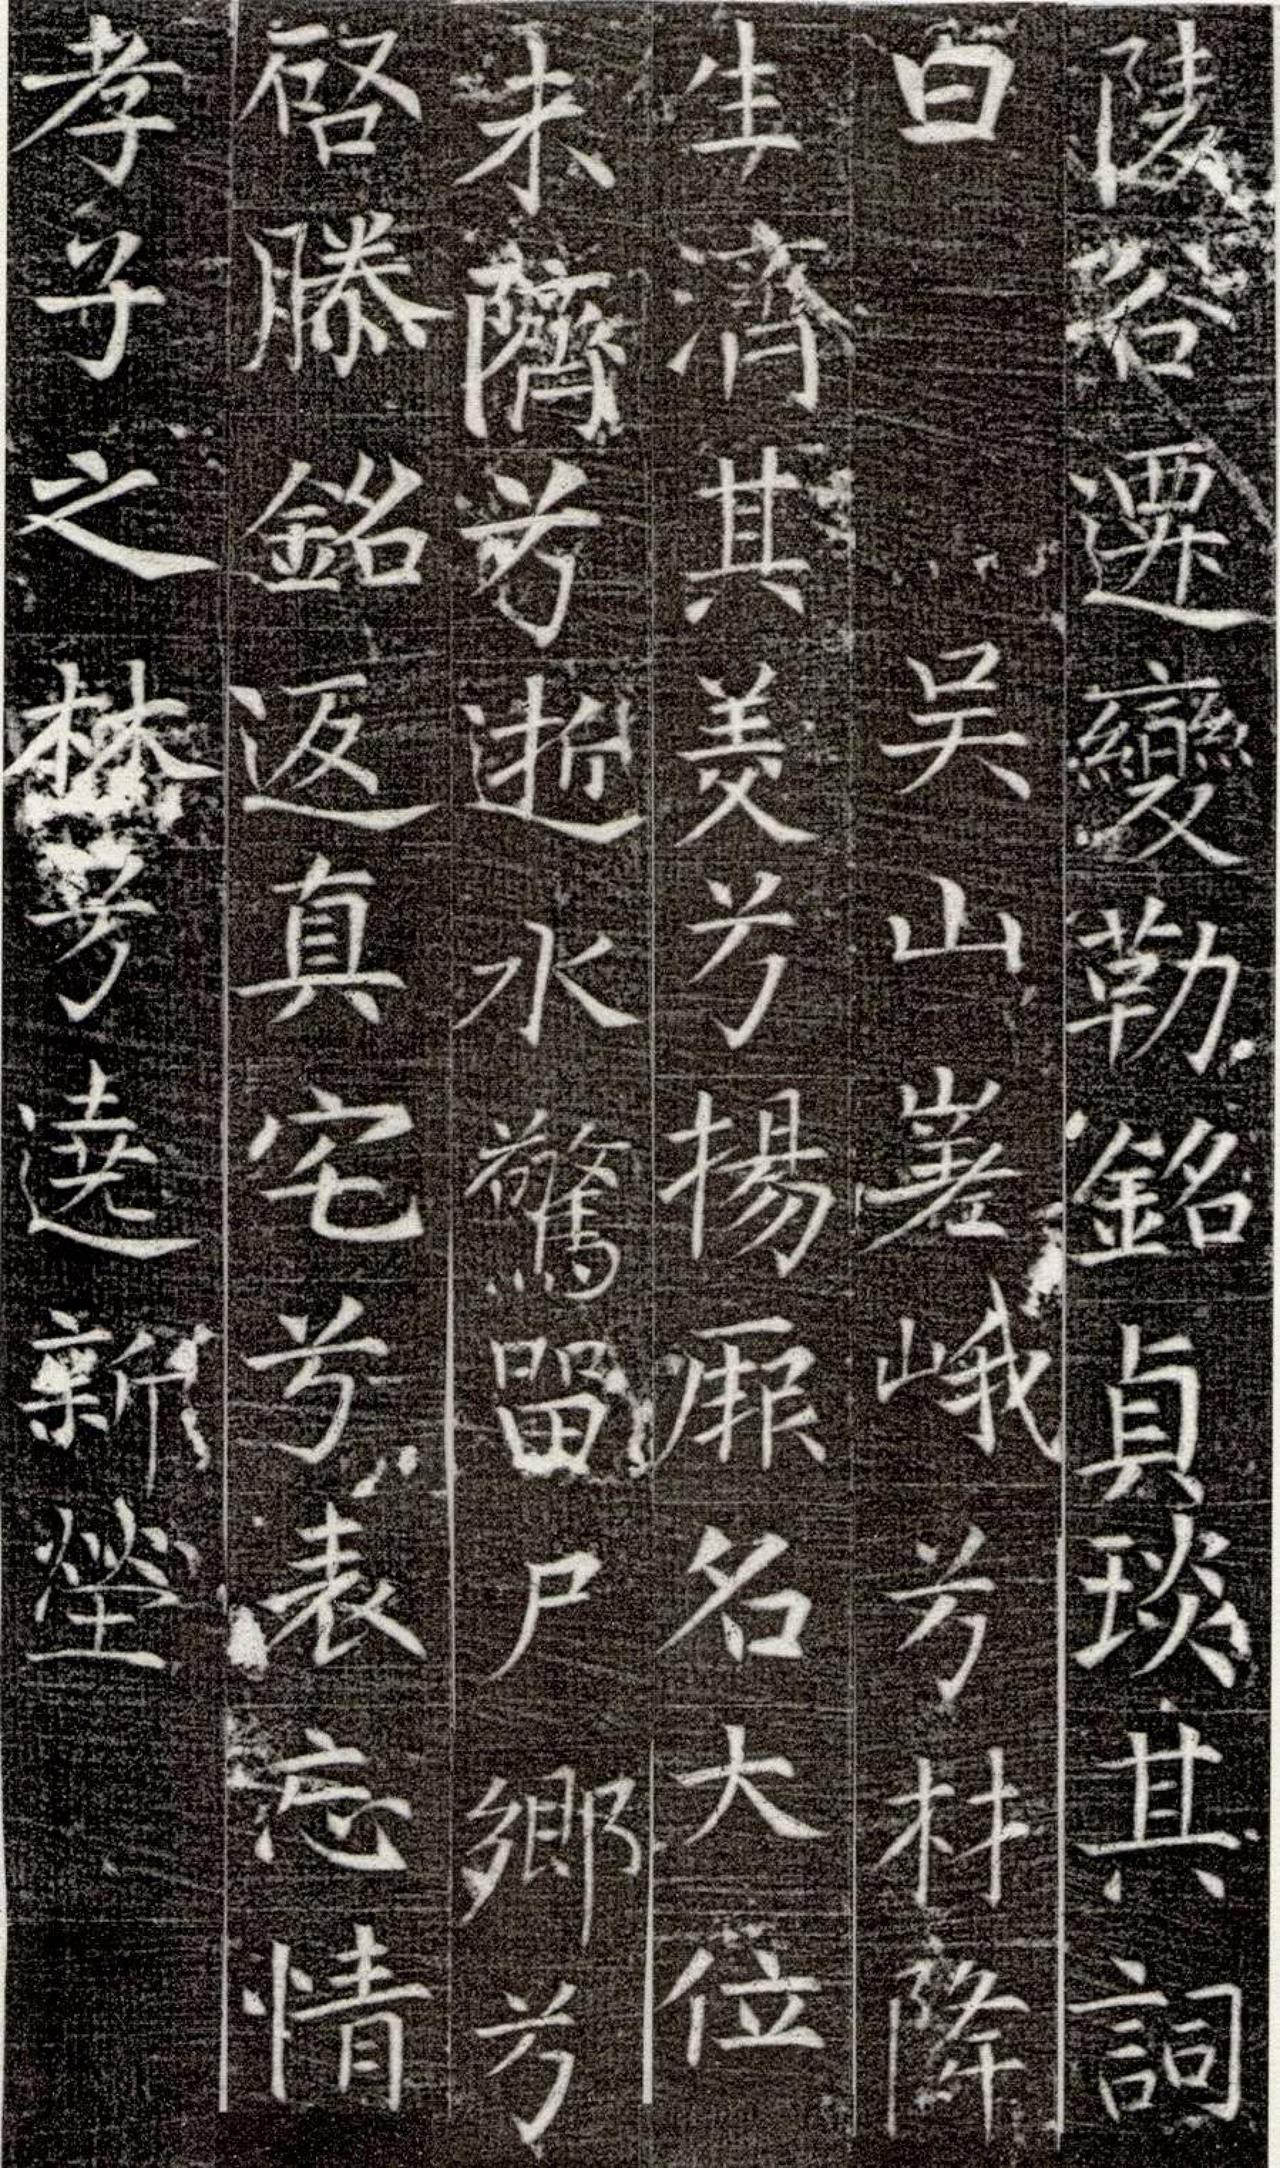 陵谷遷變勒銘貞琰其詞
曰 吳山嵳峨兮材降
生濟其美兮揚厥名大位
未隮兮逝水驚留尸鄉兮
啓滕銘返真宅兮表忘情
孝子之兮遶新塋